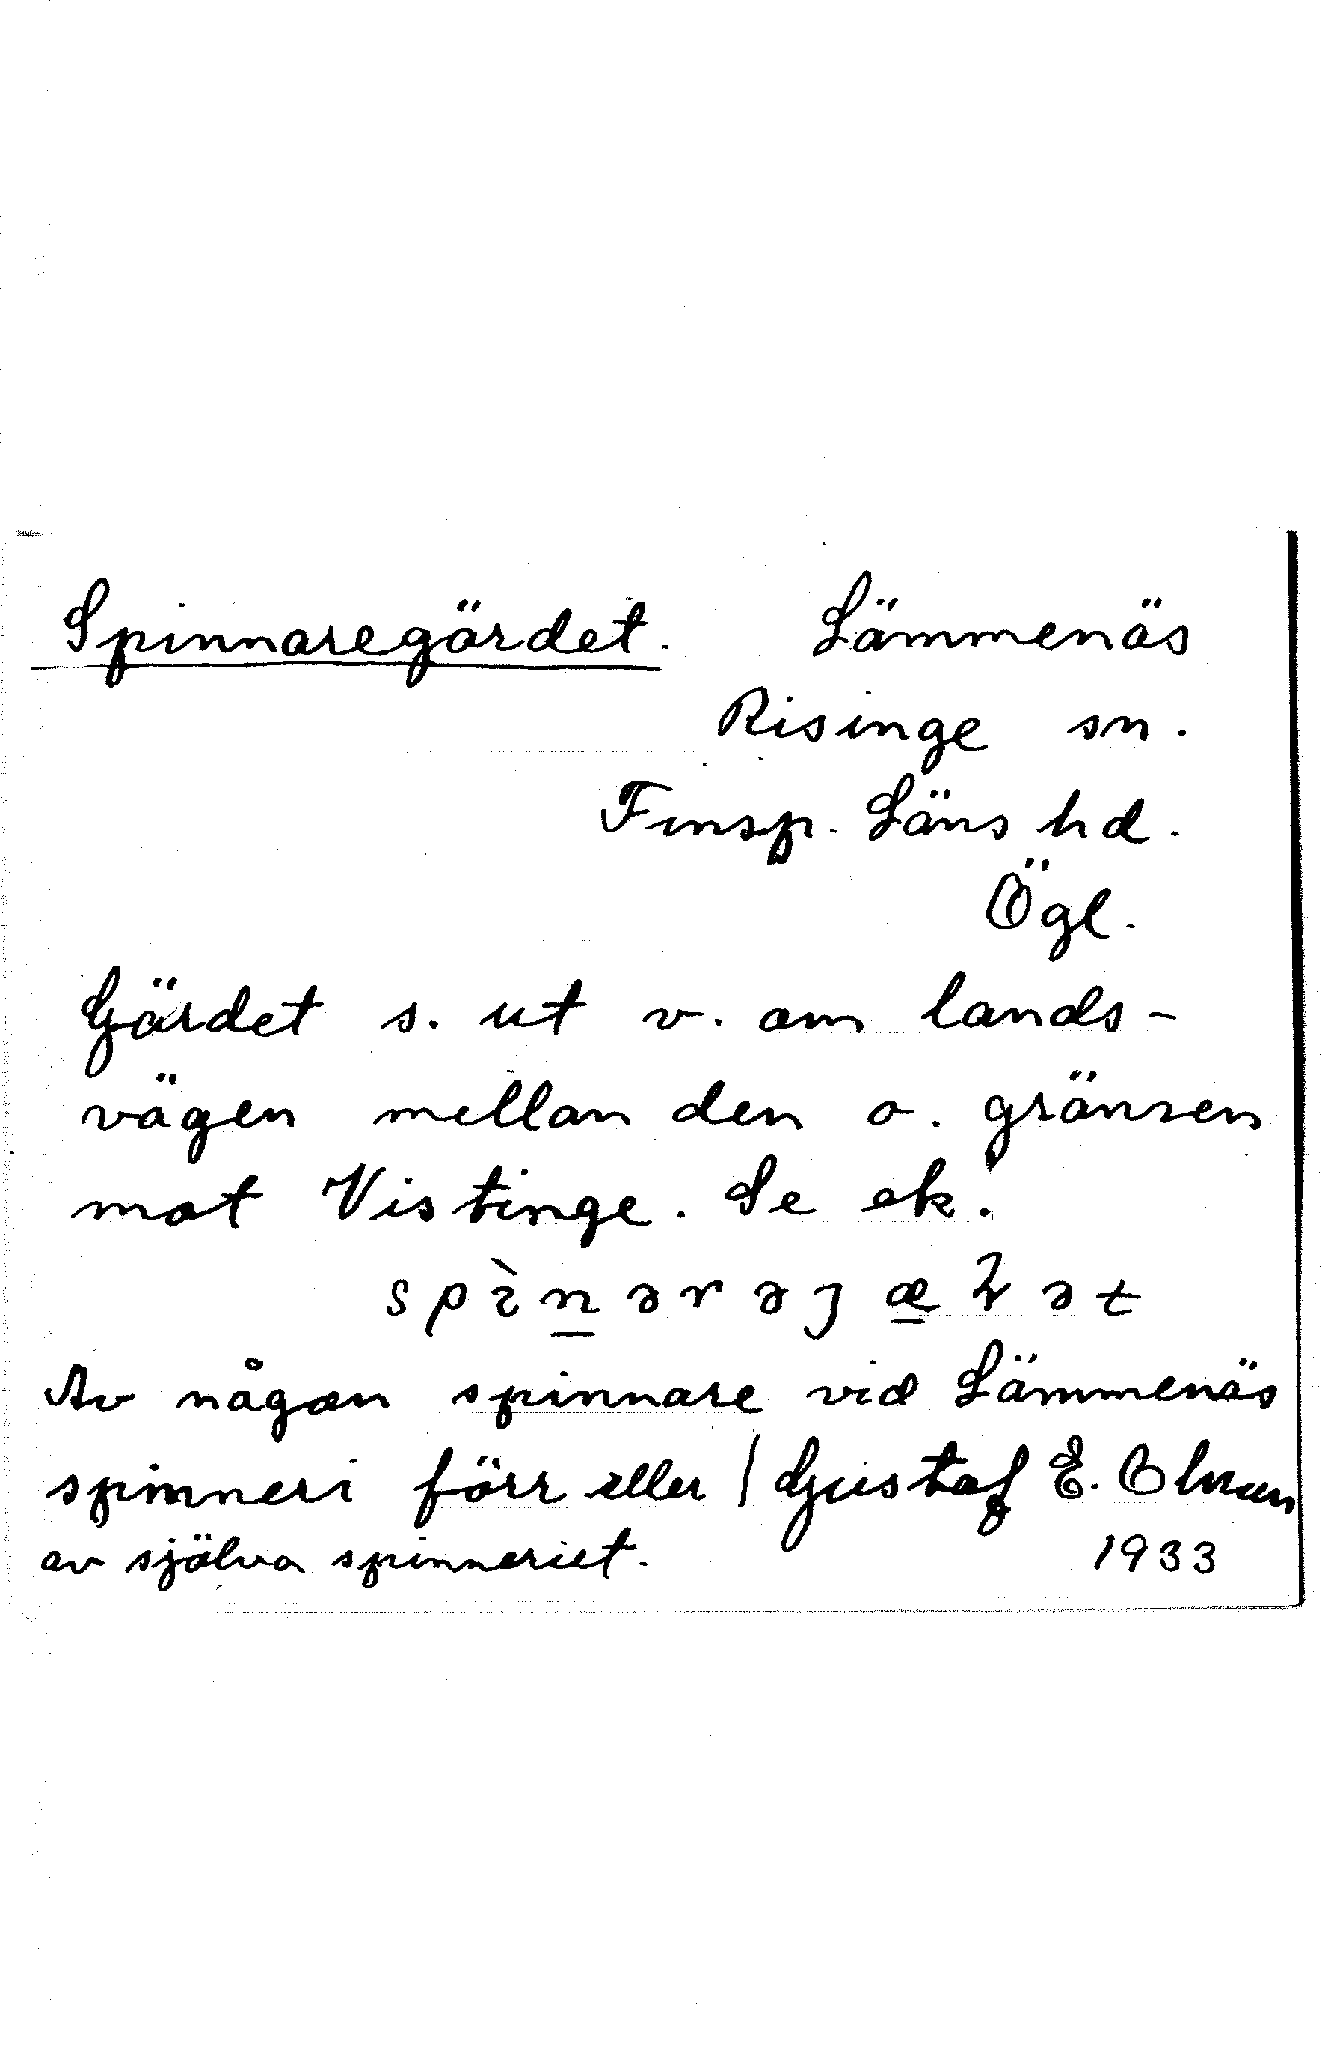 Spinnaregärdet. Lämmenäs
Risinge sn.
Finsp. Läns hd.
Ögl.
Gärdet s. ut v. om lands-
vägen mellan den o. gränsen
mot Vistinge. Se ek.
Av någon spinnare vid Lämmenäs
spinneri förr eller / Gustaf E. Olman
av själva spinneriet. 1933